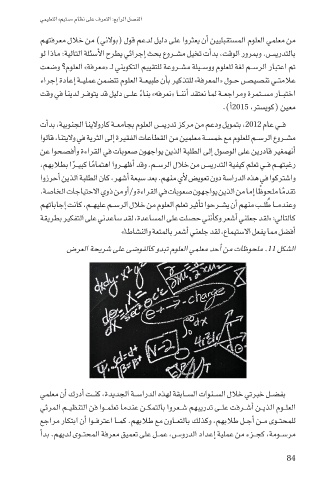 الفصل الرابع: التعرف على نظام ستيم التعليمي
من معلمي العلوم المستقبليين أن يعثروا على دليل لدعم قول (بولاني) من خلال معرفتهم
بالتدريس. وبمرور الوقت، بدأت تخيل مشروع بحث إجرائي يطرح الأسئلة التالية: ماذا لو
تم اعتبار الرسم لغة للعلوم ووسيلة مشروعة للتقييم التكويني لـ «معرفة» العلوم؟ وضعت
علامتي تنصيص حول «المعرفة» للتذكير بأن طبيعة العلوم تتضمن عملية إعادة إجراء
اختبار مستمرة ومراجعة لما نعتقد أننا «نعرفه» بناءً على دليل قد يتوفر لدينا في وقت
معين (كويستر، 2015أ).
في عام 2012، بتمويل ودعم من مركز تدريس العلوم بجامعة كارولاينا الجنوبية، بدأت
مشروع الرسم للعلوم مع خمسة معلمين من القطاعات الفقيرة إلى الثرية في ولايتنا، قالوا
أنهم غير قادرين على الوصول إلى الطلبة الذين يواجهون صعوبات في القراءة وأفصحوا عن
رغبتهم في تعلم كيفية التدريس من خلال الرسم. وقد أظهروا اهتمامًا كبيرًا بطلابهم،
واشتركوا في هذه الدراسة دون تعويض لأي منهم. بعد سبعة أشهر، كان الطلبة الذين أحرزوا
تقدمًا ملحوظًا إما من الذين يواجهون صعوبات في القراءة و/أو من ذوي الاحتياجات الخاصة.
وعندما طُلب منهم أن يشرحوا تأثير تعلم العلوم من خلال الرسم عليهم، كانت إجاباتهم
كالتالي: «لقد جعلني أشعر وكأنني حصلت على المساعدة، لقد ساعدني على التفكير بطريقة
أفضل مما يفعل الاستماع، لقد جعلني أشعر بالمتعة والنشاط»
الشكل 11. ملحوظات من أحد معلمي العلوم تبدو كالفوضى على شريحة العرض
charge
N=2
بفضل خبرتي خلال السنوات السابقة لهذه الدراسة الجديدة، كنت أدرك أن معلمي
العلوم الذين أشرفت على تدريبهم شعروا بالتمكن عندما تعلموا فن التنظيم المرئي
للمحتوى من أجل طلابهم، وكذلك بالتعاون مع طلابهم. كما اعترفوا أن ابتكار مراجع
مرسومة، كجزء من عملية إعداد الدروس، عمل على تعميق معرفة المحتوى لديهم. بدأ
84